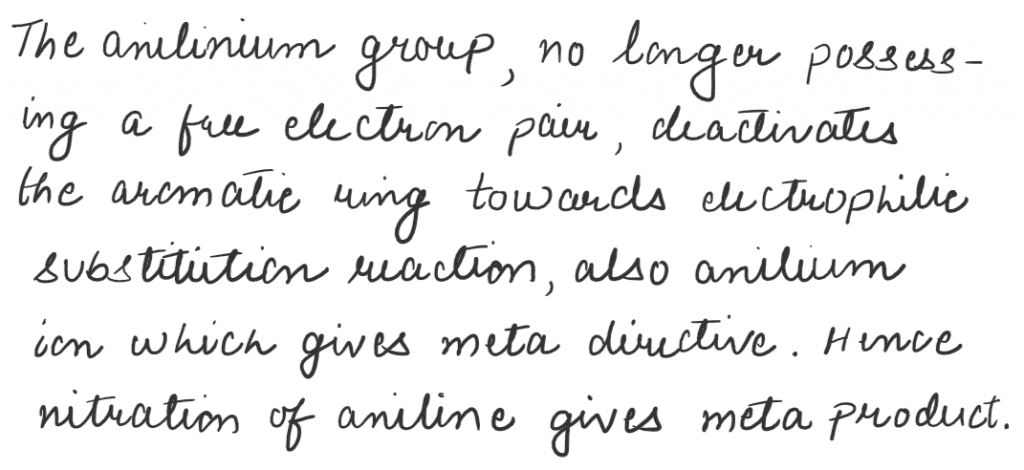 The anilinium group, no longer possess-
ing a free electron pair, deactivates
the aromatic ring towards electrophilic
substitution reaction, also anilium
ion which gives meta directive. Hence
nitration of aniline gives meta product.